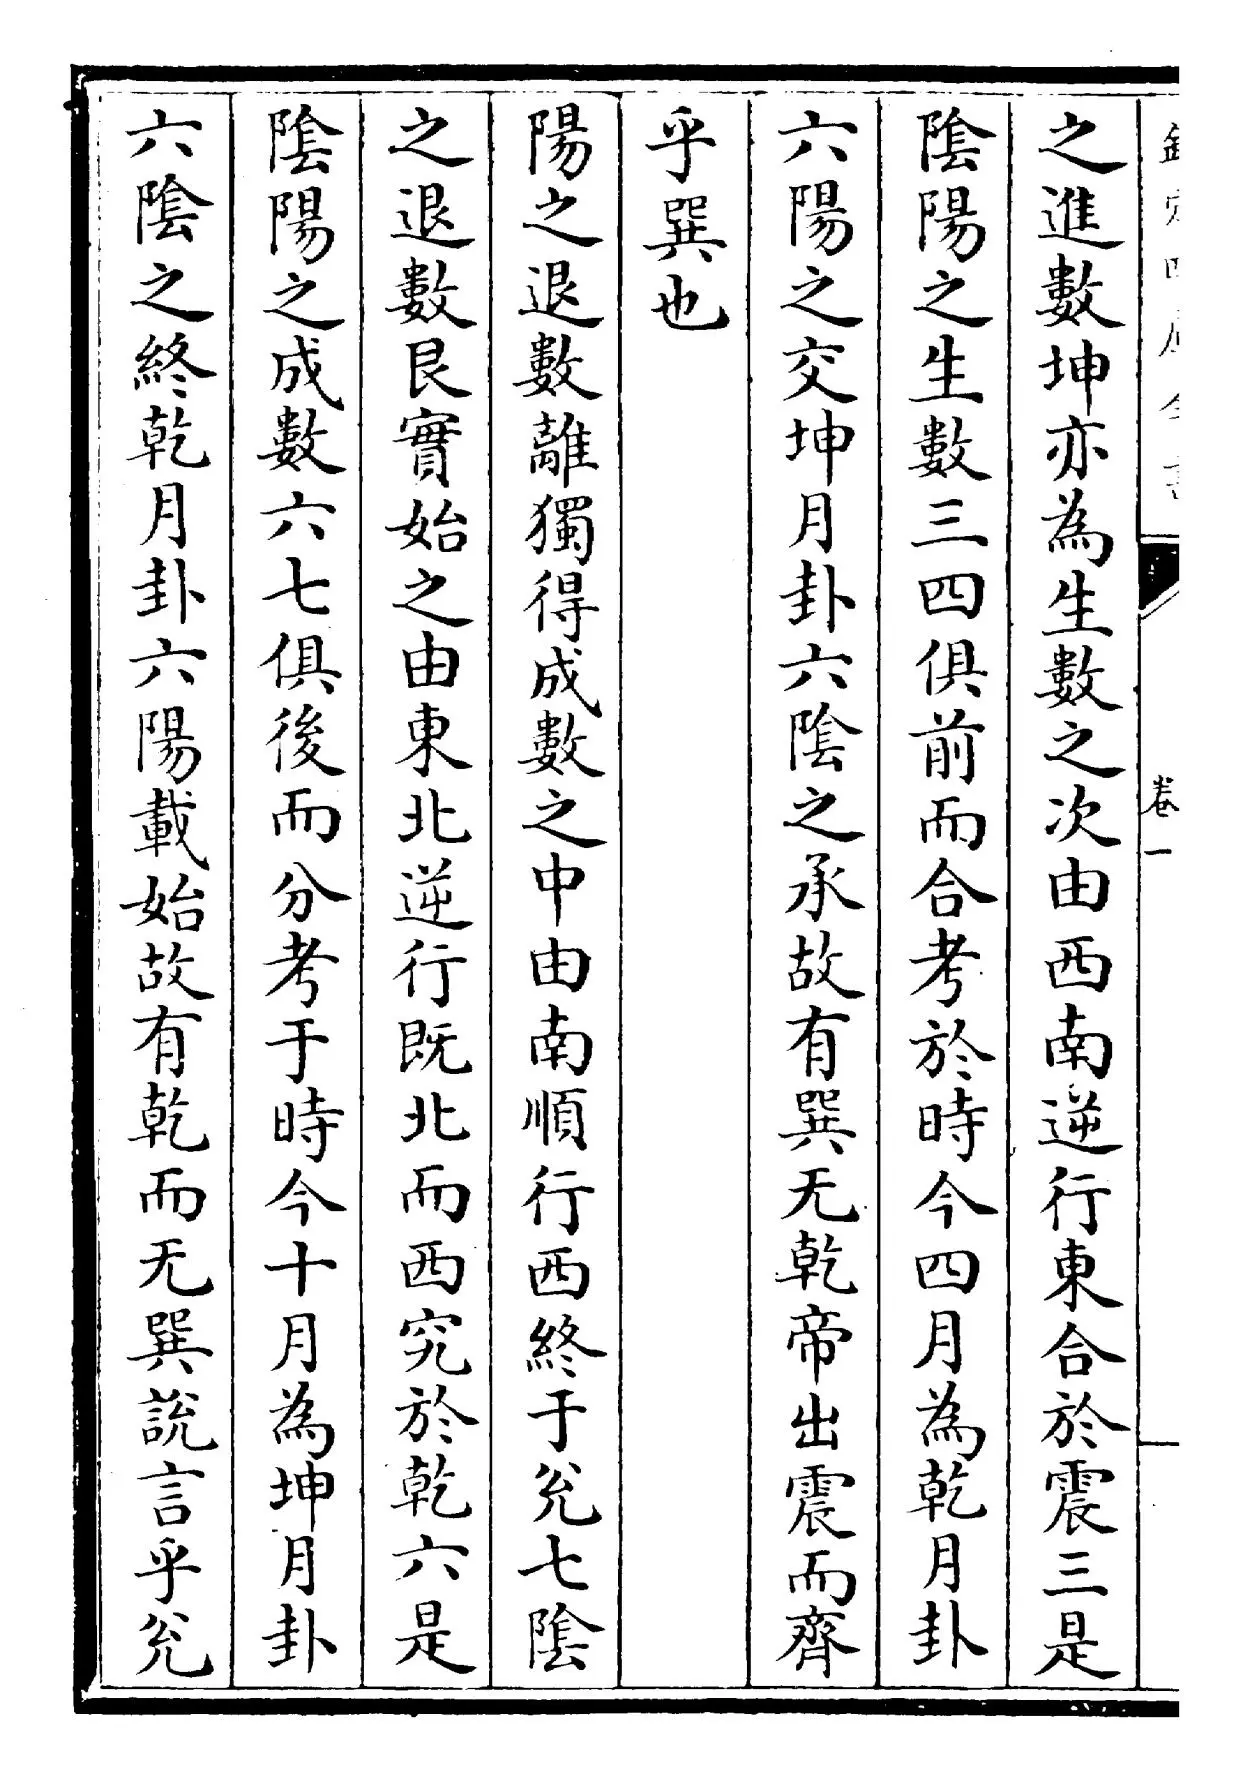 欽定四庫全書
卷一
之進數坤亦為生數之次由西南逆行東合於震三是
陰陽之生數三四俱前而合考於時今四月為乾月卦
六陽之交坤月卦六陰之承故有巽无乾帝出震而齊
乎巽也
陽之退數離獨得成數之中由南順行西終于兊七陰
之退數艮實始之由東北逆行既北而西究於乾六是
陰陽之成數六七俱後而分考于時今十月為坤月卦
六陰之終乾月卦六陽載始故有乾而无巽說言乎兊